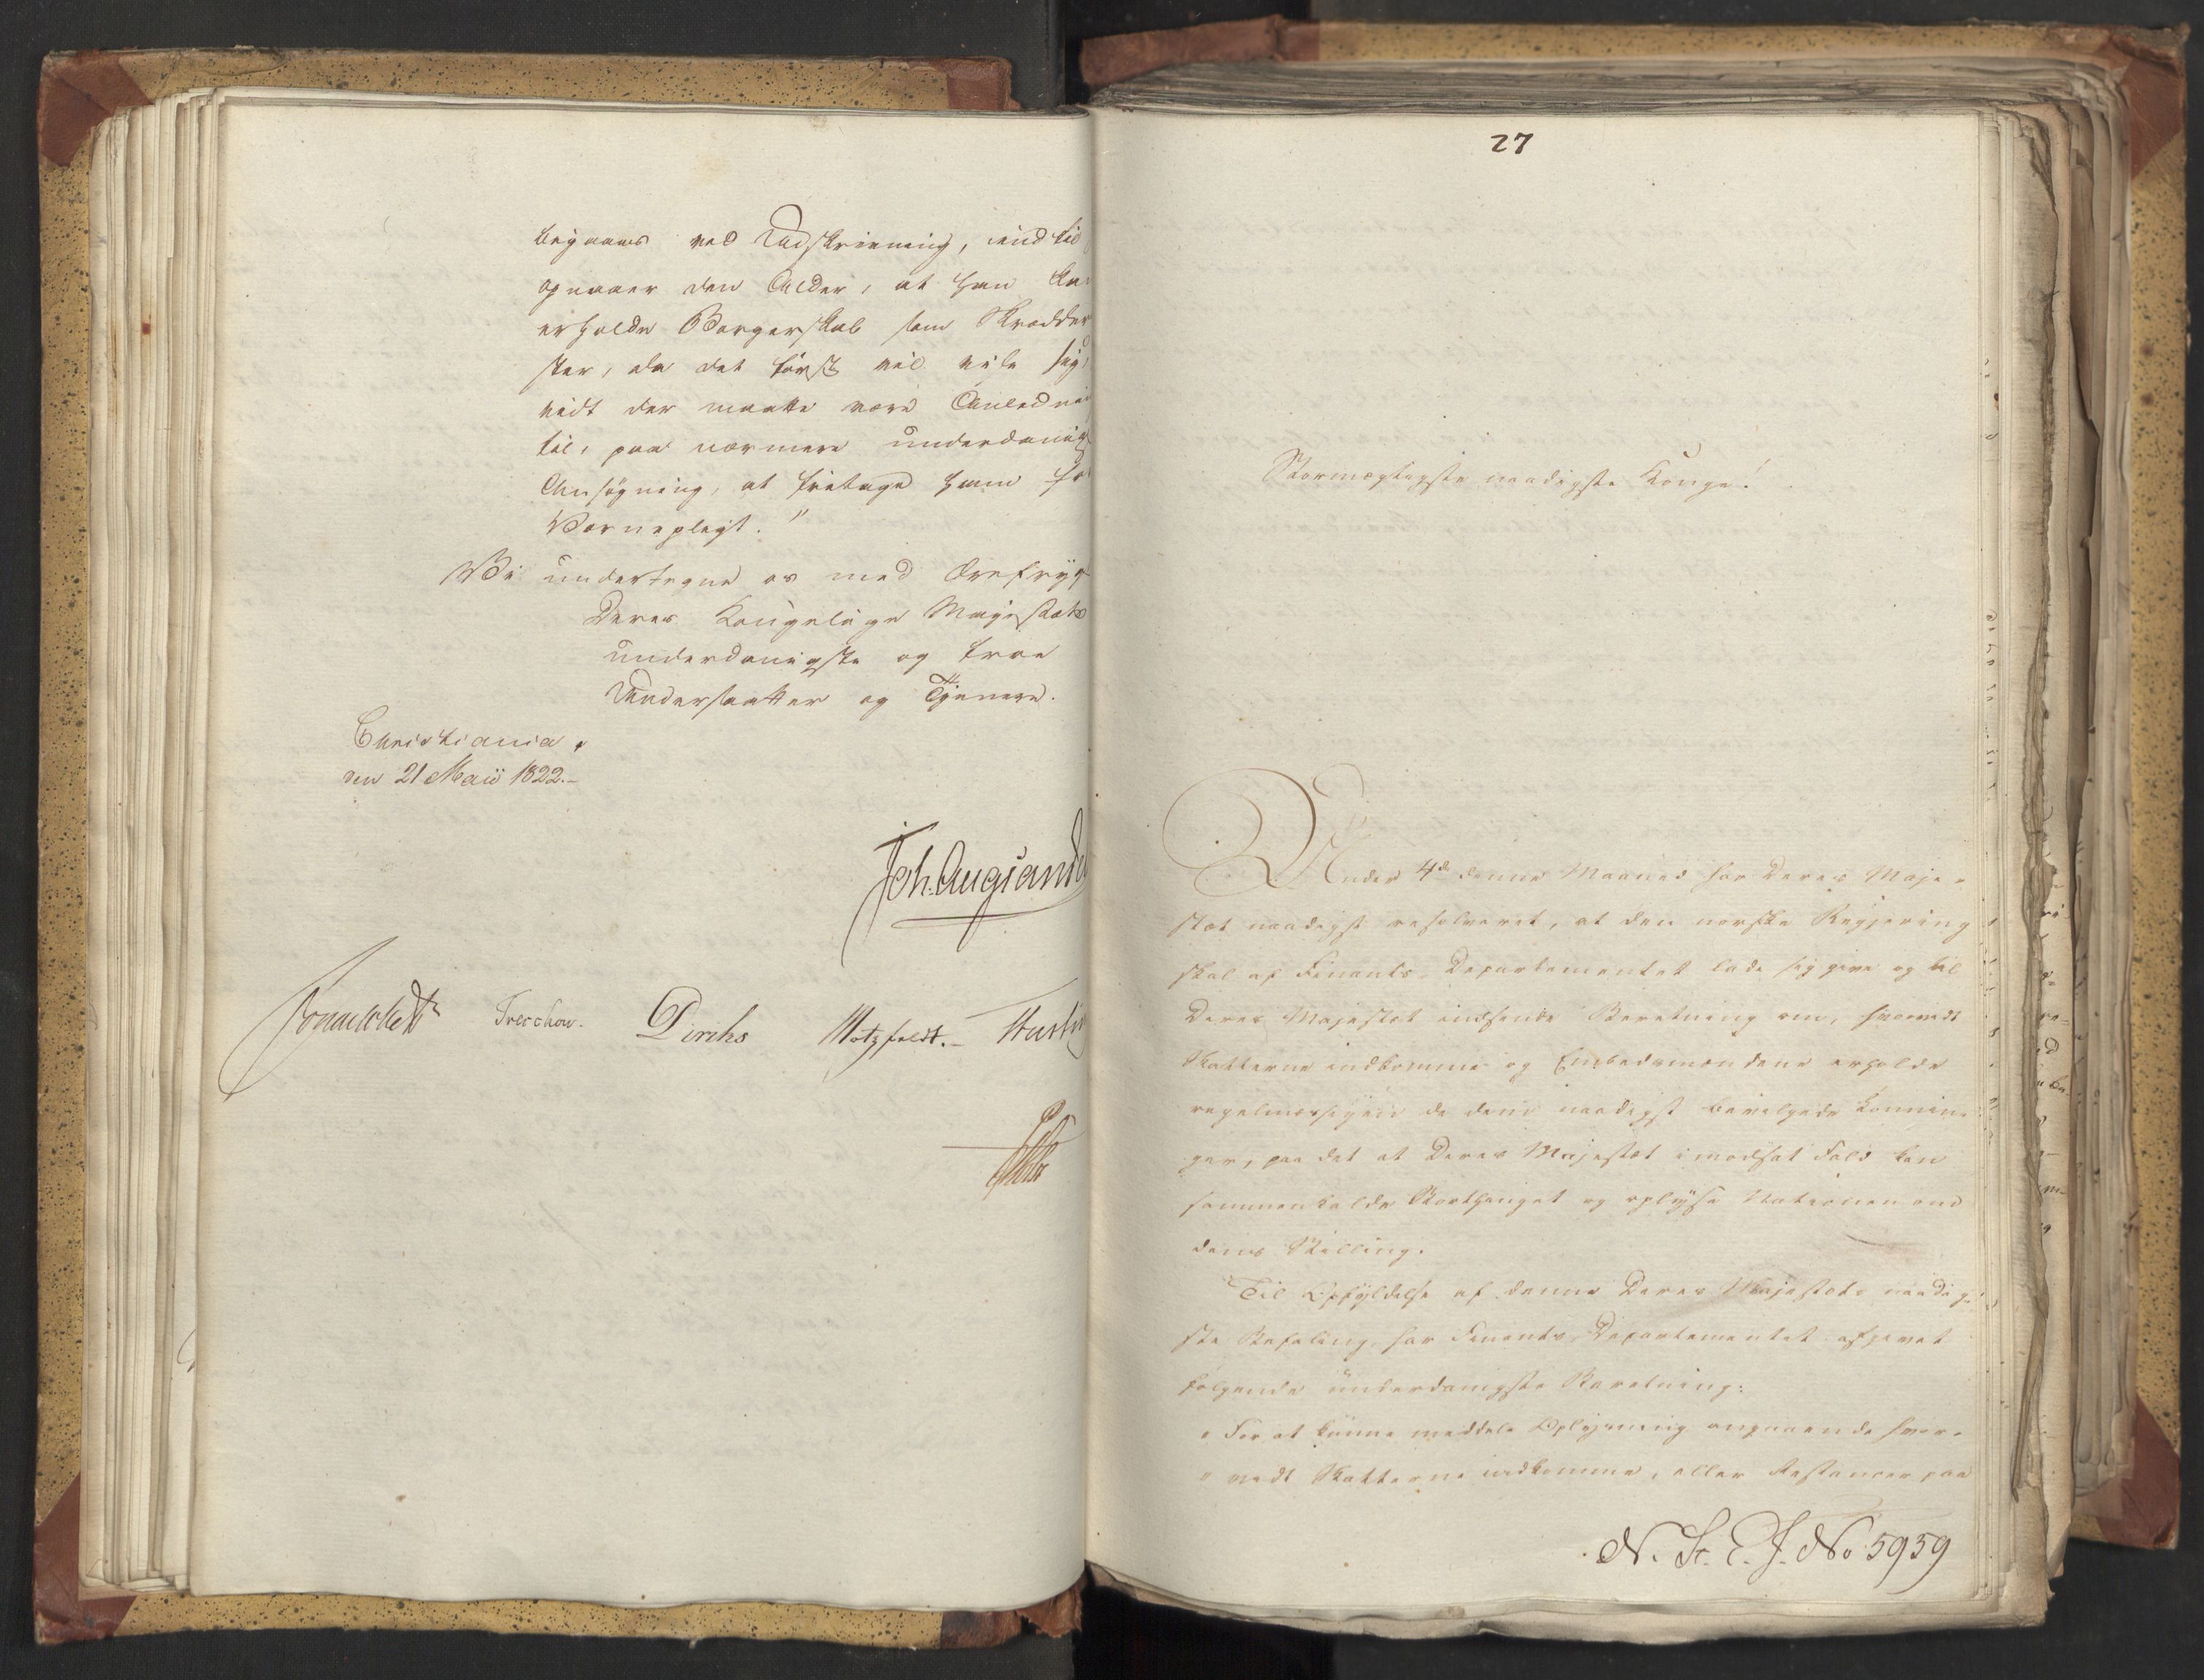 begaaes ved Udskrivning, indtil
opnaaer den Alder, at han kan
erholde Borgerskab som Skrædder
ster, da det først vil vise sig,
vidt der maatte være Anledni
til, paa nærmere underdanigst
Ansøgning, at fritage ham fr
Værnepligt."
Vi undertegne os med Ærefrygt
Deres Kongelige Majestæts
underdanigste og troe
Undersaatter og Tjenere.
Christiania,
den 21 Maii 1822.-
Joh. Aug: Sande
Sommerhielm Treschow. Diriks Motzfeldt.- Hasth
27
Stormægtigste naadigste Konge!
Under 4de denne Maaned har Deres Maje-
stæt naadigst resolveret, at den norske Regjering
skal af Finants-Departementet lade sig give og til
Deres Majestæt indsende Beretning om, hvorvidt
Skatterne indkomme og Embedsmændene erholde
regelmæssigen de dem naadigst bevilgede Lønnin-
ger, paa det at Deres Majestæt i modsat Fald kan
sammenkalde Storthinget og oplyse Nationen om
dens Stilling.
Til Opfyldelse af denne Deres Majestæts naadig-
ste Befaling, har Finants-Departementet afgivet
følgende underdanigste Beretning:
"For at kunne meddele Oplysning angaaende hvor-
"vidt Skatterne indkomme, eller Restancer paa
N. St. E. J. No 5959